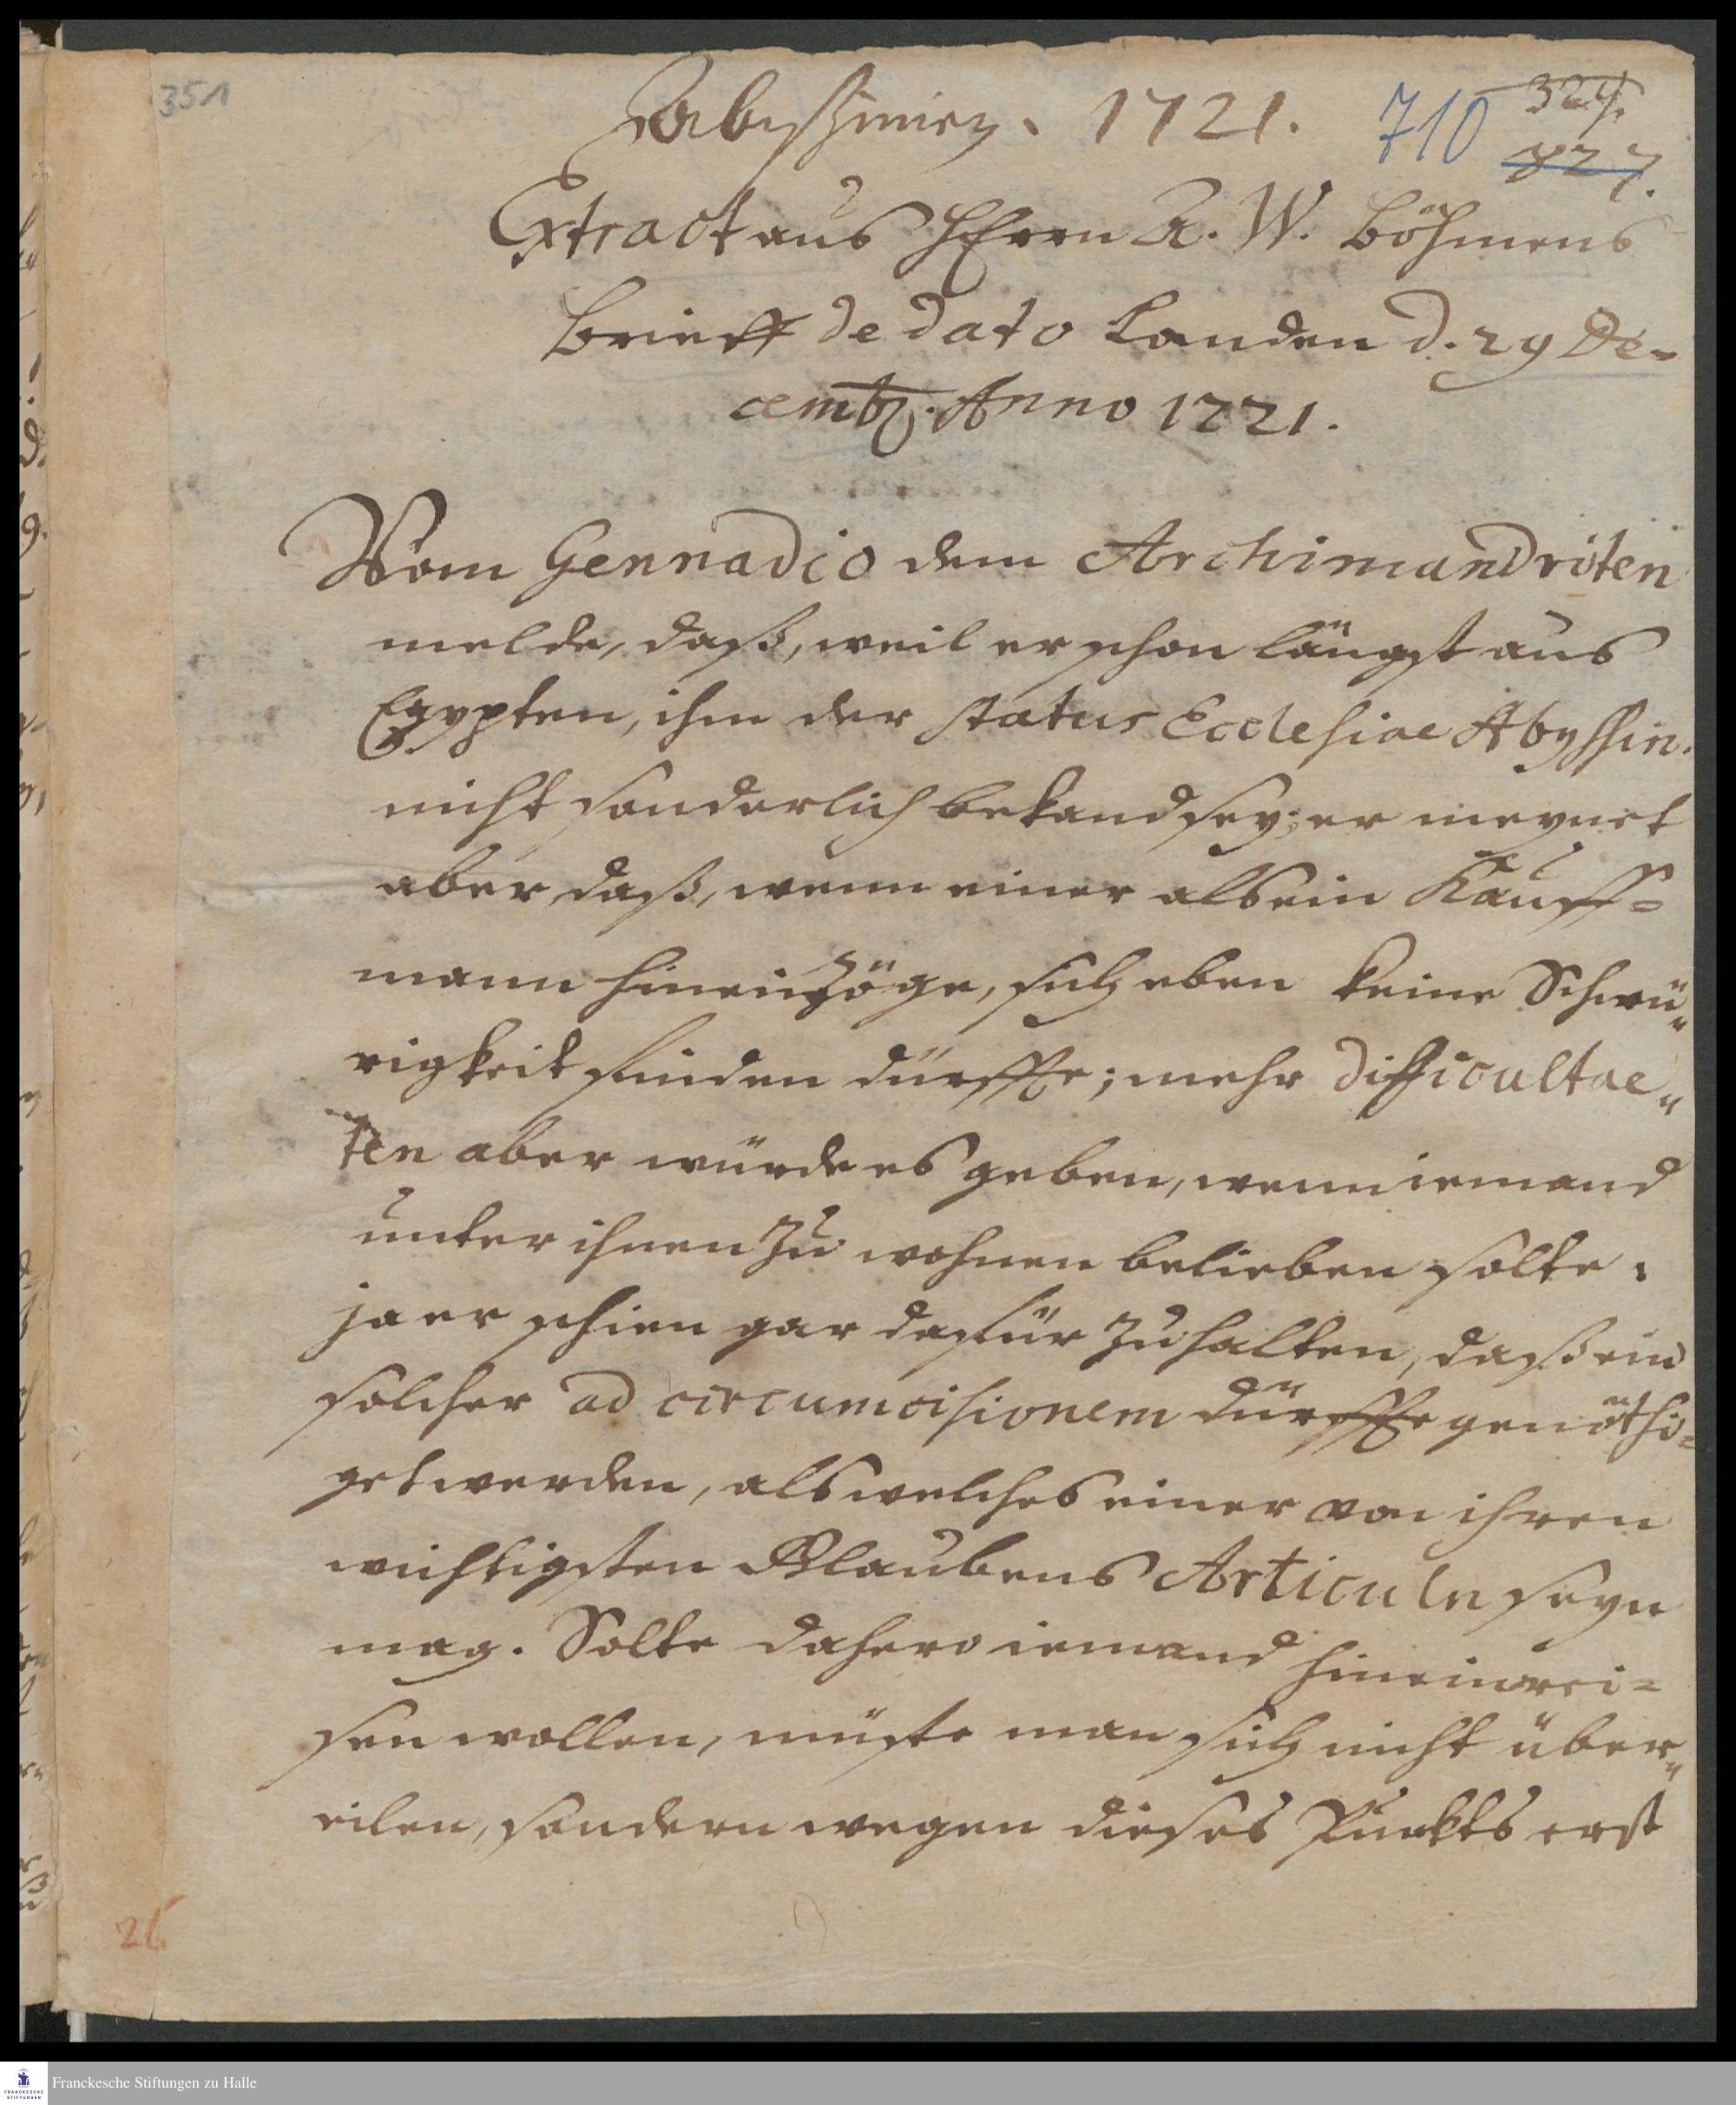 351
Abyssinien. 1721.
710
324.
327.
Extract aus HErrn A. W. Böhmens
Brieff de dato Londen d. 29 De-
cembr. Anno 1721.
Vom Gennadio dem Archimandriten
melde, daß, weil er schon längst aus
Egypten, ihm der status Ecclesiae Abyssin.
nicht sonderlich bekand sey; er meynet
aber, daß, wenn einer als ein Kauff-
mann hineinzöge, sich eben keine Schwü-
rigkeit finden dürffte; mehr difficultae-
ten aber würde es geben, wenn iemand
unter ihnen zu wohnen belieben solte:
ja er schien gar dafür zu halten, daß ein
solcher ad circumcisionem dürffte genöthi-
get werden, als welches einer von ihren
wichtigsten Glaubens Articuln seyn
mag. Solte dahero iemand hinein rei-
sen wollen, müste man sich nicht über-
eilen, sondern wegen dieses Punkts erst
26
FRANCKESCHE
STIFTUNGEN
Franckesche Stiftungen zu Halle